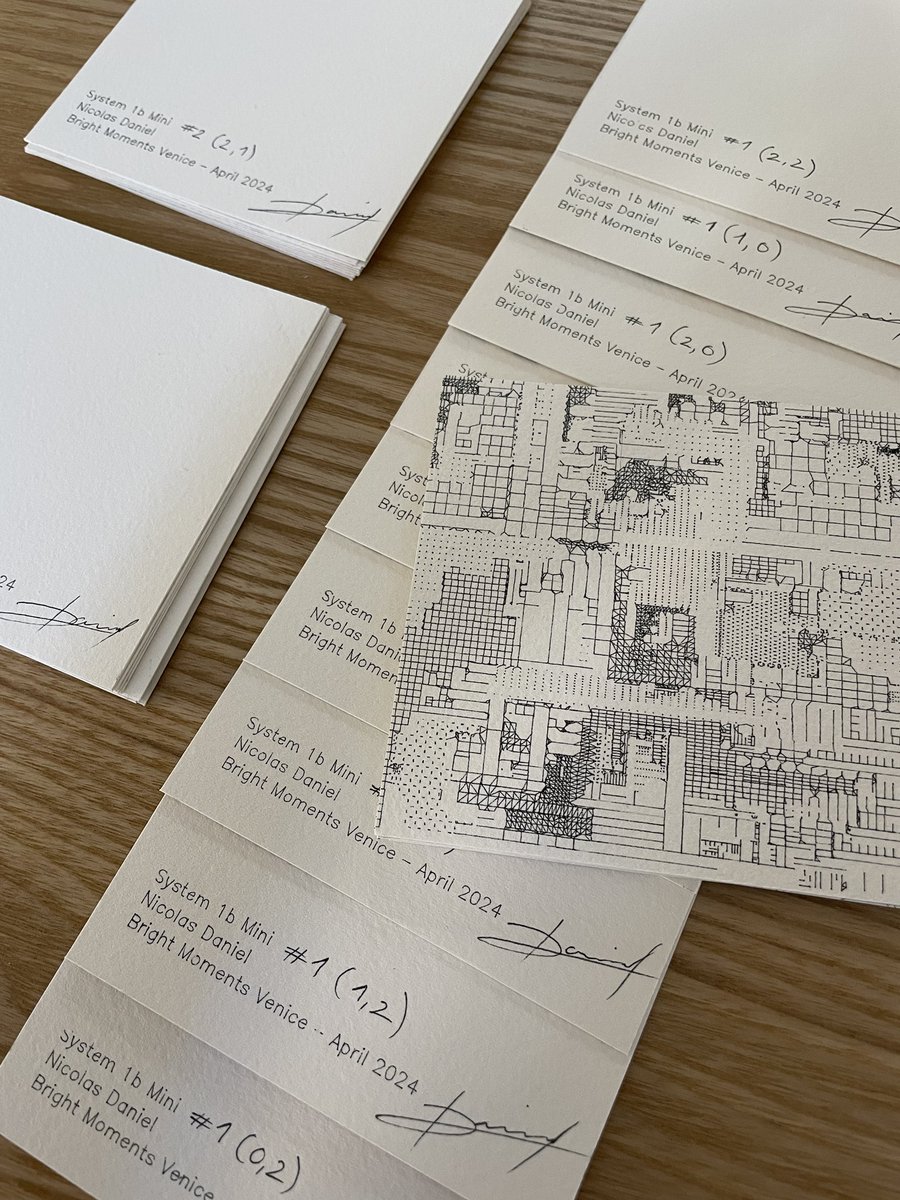 System 1b Mini #2 (2,1)
Nicolas Daniel
Bright Moments Venice – April 2024
Daniel
System 1b Mini #1 (2,2)
Nico cs Daniel
Bright Moments Venice – April 2024
System 1b Mini #1 (1,0)
Nicolas Daniel
Bright Moments Venice – April 2024
Daniel
System 1b Mini #1 (2,0)
Nicolas Daniel
Bright Moments Venice – April 202
Syst
24
Daniel
Syst
Nicol
Bright
System 1b
Nicolas Dani
Bright Momen
System 1b Mini
Nicolas Daniel
Bright Moments Venice – April 2024
Daniel
System 1b Mini #1 (1,2)
Nicolas Daniel
Bright Moments Venice - April 2024
Daniel
System 1b Mini #1 (0,2)
Nicolas Daniel
Bright Moments Venice